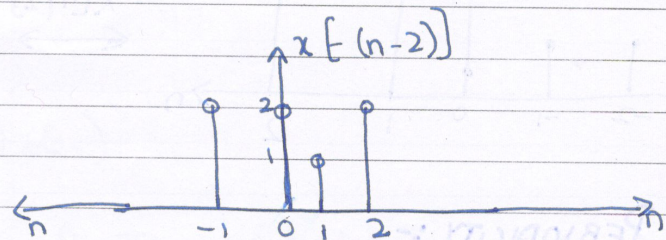 x[-(n-2)]
2
1
n -1 0 1 2 n